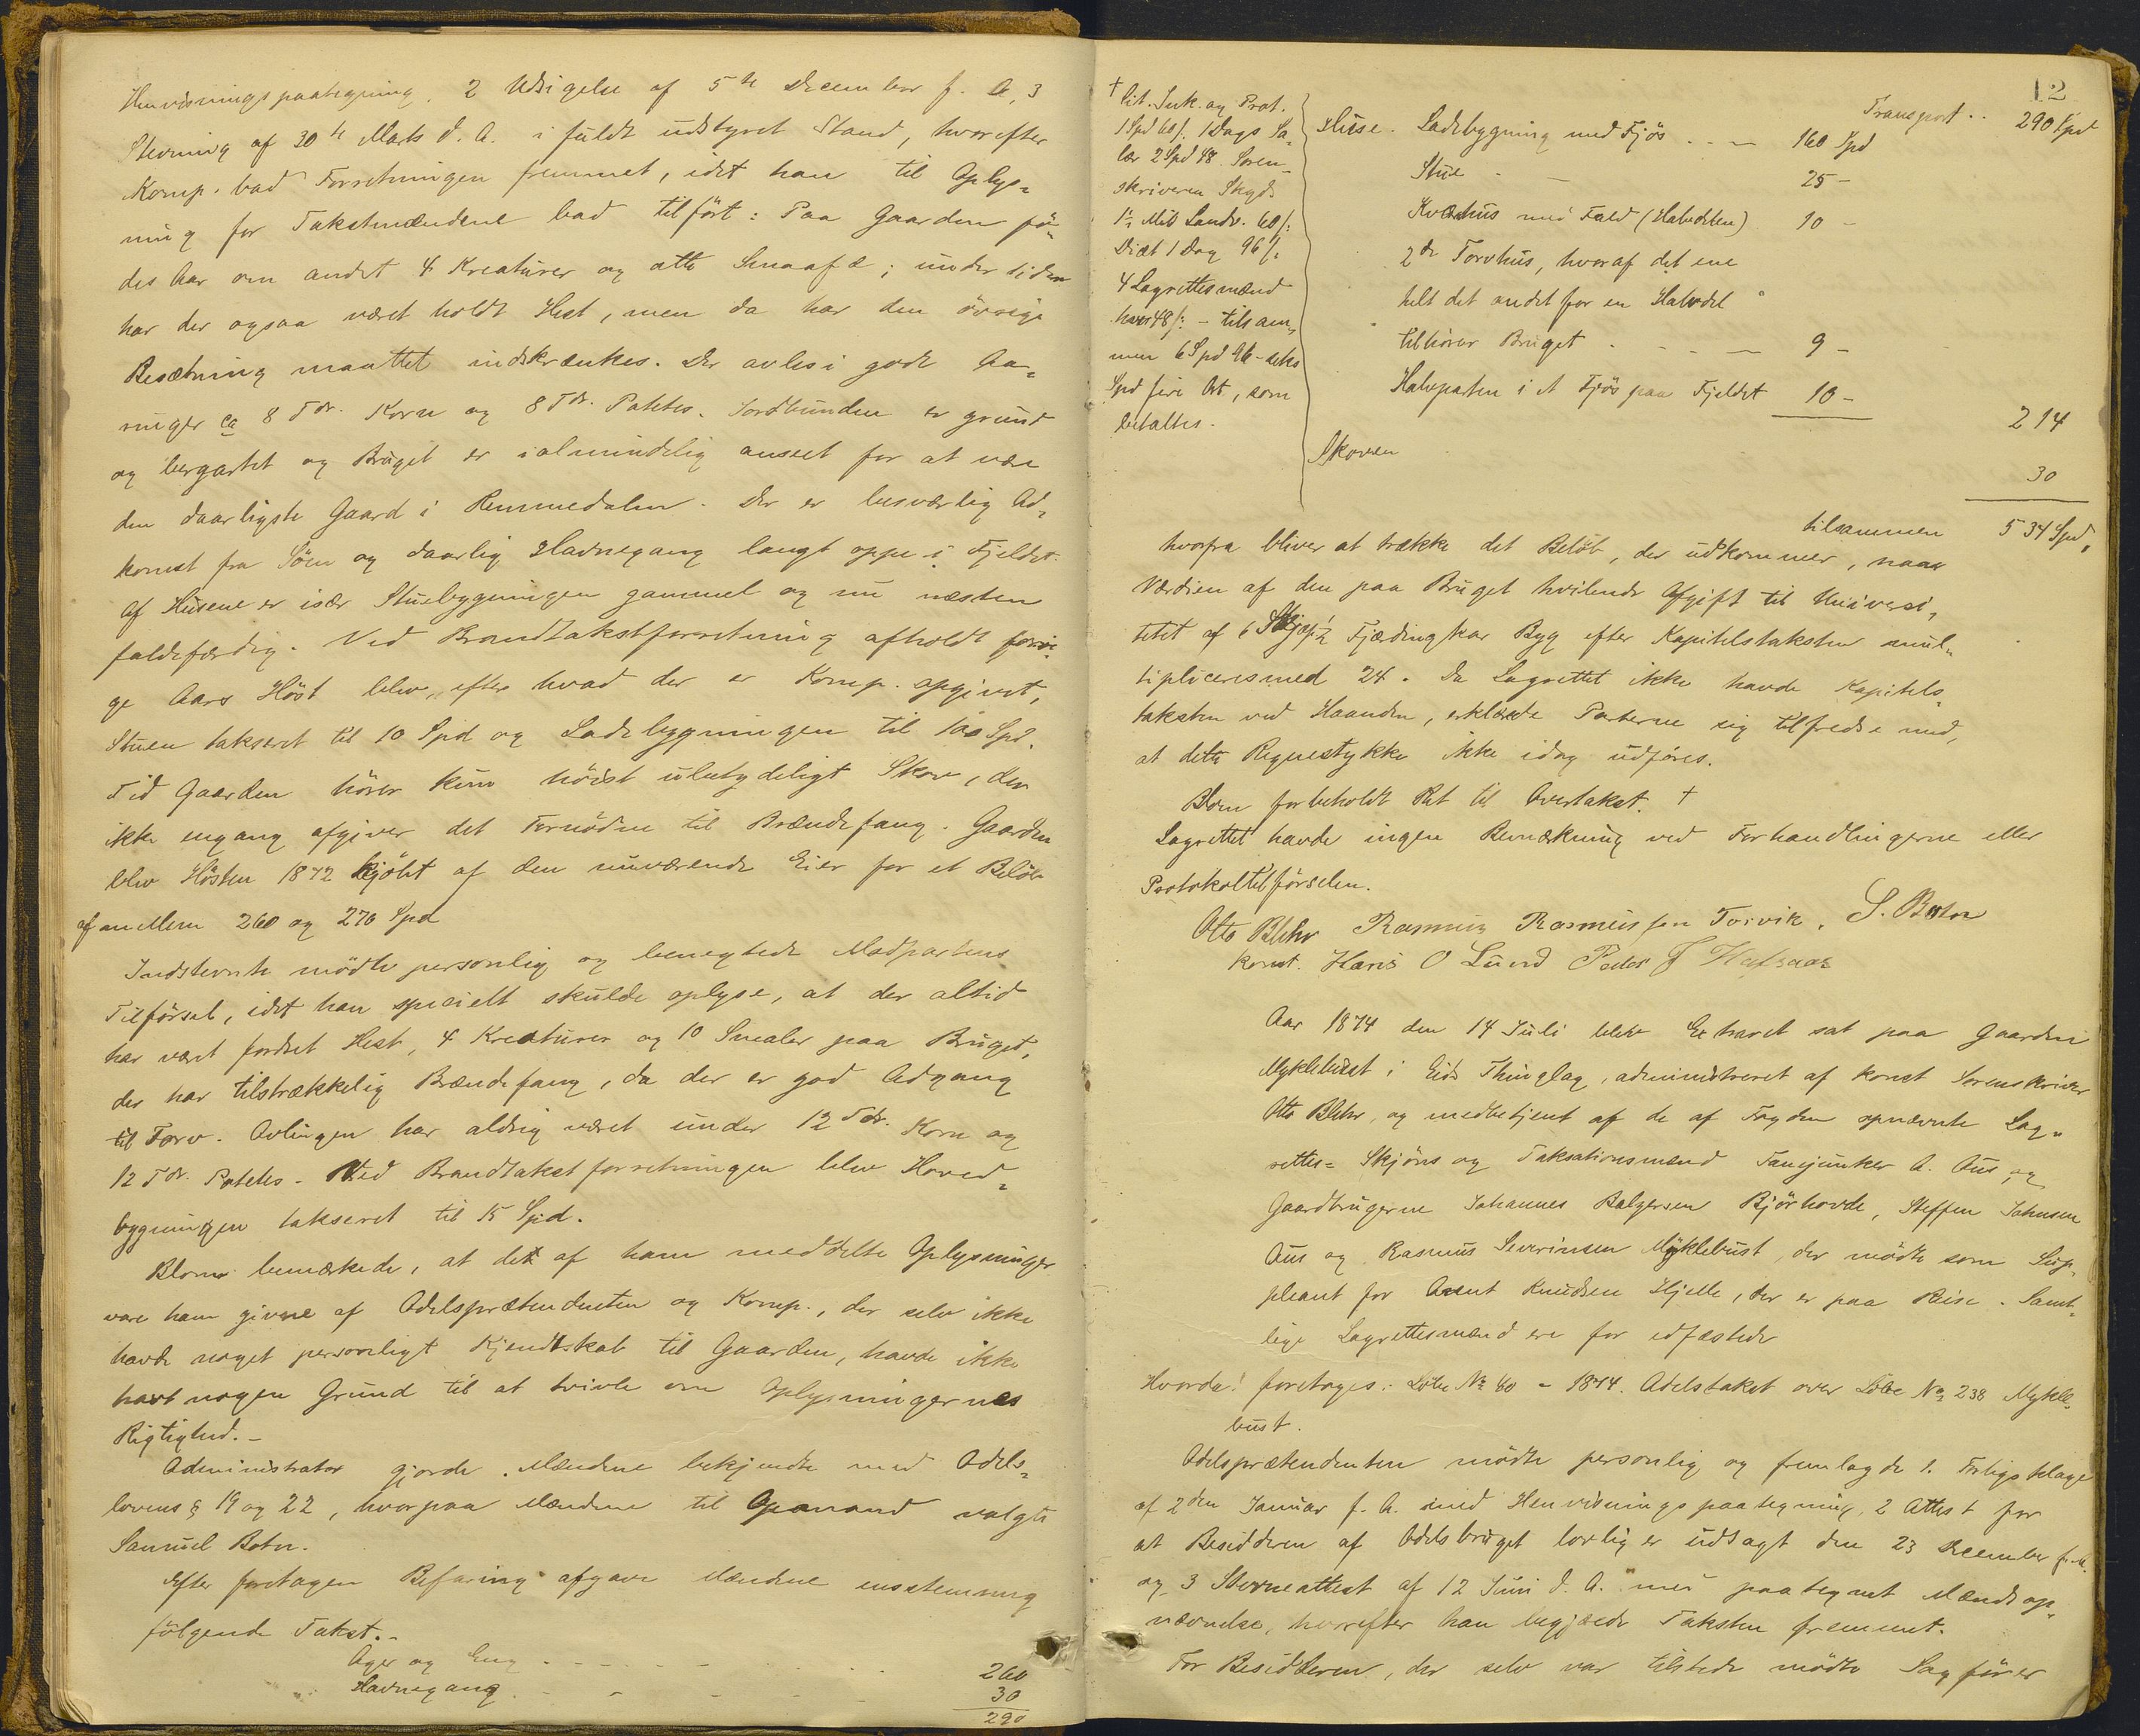 Henvisningspaategning, 2 Udsigelse af 5te December f. A, 3
Stevning af 30te Marts d. A. i fuldt udstyret Stand, hvorefter
Komp. bad Forretningen fremmet, idet han til Oplys=
ning for Takstmændene bad tilført: Paa Gaarden fö=
des Aar om andet 4 Kreaturer og otte Smaafæ; undertiden
har der ogsaa været holdt Hest, men da har den övrige
Besætning maattet indskrænkes. Der avles i gode Aa=
ringer ca 8 Tdr. Korn og 8 Tdr. Potetes. Jordbunden er grund
og bergartet og Bruget er i almindelig anseet for at være
den daarligste Gaard i Remmedalen. Der er besværlig Ad=
komst fra Söen og daarlig Havnegang langt oppe i Fjeldet.
Af Husene er især Stuebygningen gammel og nu næsten
faldefærdig. Ved Brandtakstforretning afholdt forri=
ge Aars Höst blev, efter hvad der er Komp. opgivet,
Stuen takseret til 10 Spd og Ladebygningen til 100 Spd.
Til Gaarden hörer kun höist ubetydeligt Skov, der
ikke engang afgiver det Fornödne til Brændefang. Gaarden
blev Hösten 1872 kjöbt af den nuværende Eier for et Belöb
af mellem 260 og 270 Spd
Indstevnte mödte personlig og benegtede Modpartens
Tilförsel, idet han specielt skulde oplyse, at der altid
har været fordret Hest, 4 Kreaturer og 10 Smaler paa Bruget,
der har tilstrækkelig Brændefang, da der er god Adgang
til Torv. Avlingen har aldrig været under 12 Tdr. Korn og
12 Tdr. Potetes. Ved Brandtakstforretningen blev Hoved=
bygningen takseret til 15 Spd.
Blom bemærkede, at det af ham meddelte Oplysninger
vare ham givne af Odelsprætendenten og Komp., der selv ikke
havde noget personligt Kjendtskab til Gaarden, havde ikke
havt nogen Grund til at tvivle om Oplysningernes
Rigtighed. -
Administrator gjorde Mændene bekjendte med Odels=
lovens § 19 og 22, hvorpaa Mændene til Opmand valgte
Samuel Botn.
Efter foretagen Befaring afgave Mændene eenstemmig
fölgende Takst. -
Ager og Eng - - - 260
Havnegang - - - 30
290
12
† Lit. Ink. og Prot.
1 Spd 60 s. 1 Dags Sa=
lær 2 Spd 48. Soren=
skriveren Skyds
1 1/2 Mil Landv. 60 s:
Diæt 1 Dag 96 s.
4 Lagrettesmænd
hver 48 s: - tilsam=
men 6 Spd 96 - seks
Spd fire Ort, som
betaltes.
Transport .. 290 Spd
Huse. Ladebygning med Fjös - - - 160 Spd
Stue - - 25 -
Kværnhus med Fald (Halvdelen) 10 -
2de Torvhus, hvoraf det ene
helt det andet for en Halvdel
tilhörer Bruget - - - 9 -
Halvparten i et Fjös paa Fjeldet 10 -
214
Skoven
30
tilsammen 534 Spd,
hvorfra bliver at trække det Belöb, der udkommer, naar
Værdien af den paa Bruget hvilende Afgift til Universi=
tetet af 6 1/2 Fjædingkar Byg efter Kapitelstaksten mul=
tipliceres med 24. Da Lagrettet ikke havde Kapitels=
taksten ved Haanden, erklærede Parterne sig tilfredse med,
at dette Regnestykke ikke idag udföres.
Blom forbeholdt Ret til Overtakst. †
Lagrettet havde ingen Bemærkning ved Forhandlingerne eller
Protokoltilförselen.
Otto Blehr Rasmus Rasmussen Torvik. S. Botn
konst. Hans O Lund Peder J Hafsaas
Aar 1874 den 14 Juli blev Extraret sat paa Gaarden
Myklebust i Eids Thinglag, administreret af konst Sorenskriver
Otto Blehr, og medbetjent af de af Fogden opnævnte Lag=
rettes= Skjöns og Taksationsmænd Fanejunker A. Aus, og
Gaardbrugerne Johannes Balzersen Björhovde, Steffen Johnsen
Aus og Rasmus Severinsen Myklebust, der mödte som Sup=
pleant for Arent Knudsen Hjelle, der er paa Reise. Samt=
lige Lagrettesmænd ere for edfæstede
Hvorda! foretoges: Löbe No 40 - 1874. Odelstakst over Löbe No 238 Mykle=
bust.
Odelsprætendenten mödte personlig og fremlagde 1. Forligsklage
af 2den Januar f. A. med Henvisningspaategning, 2 Attest for
at Besidderen af Odelsbruget lovlig er udsagt den 23 December f. A.
og 3 Stevneattest af 12 Juni d. A. med paategnet Mændsop=
nævnelse, hvorefter han begjærede Taksten fremmet.
For Besidderen, der selv var tilstede mödte Sagförer